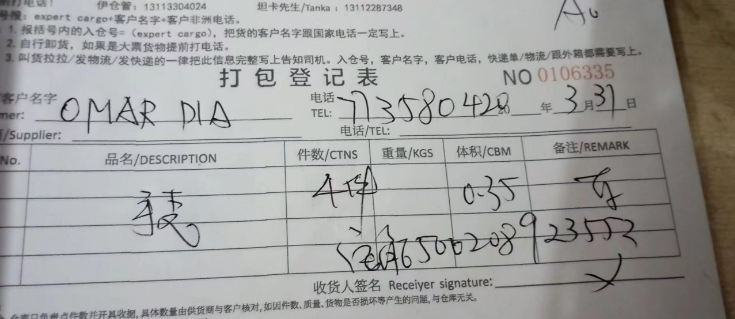 伊仓管：13113304024 坦卡先生/Tanka：13112287348
expert cargo+客户名字+客户非洲电话。
1. 报括号内的入仓号=（expert cargo），把货的客户名字跟国家电话一定写上。
2.自行卸货，如果是大票货物提前打电话。
3.叫货拉拉/发物流/发快递的一律把此信息完整写上告知司机。入仓号，客户名字，客户电话，快递单/物流/跟外箱都需要写上。
打包登记表 NO 0106335
客户名字 OMAR DIA 电话 TEL: 773580428 年 3 月 31 日
/Supplier: 电话/TEL:
No. 品名/DESCRIPTION 件数/CTNS 重量/KGS 体积/CBM 备注/REMARK
4件 0.35
6500208923552
收货人签名 Receiyer signature:
并开具收据,具体数量由供货商与客户核对,如因件数、质量、货物是否损坏等产生的问题,与仓库无关。